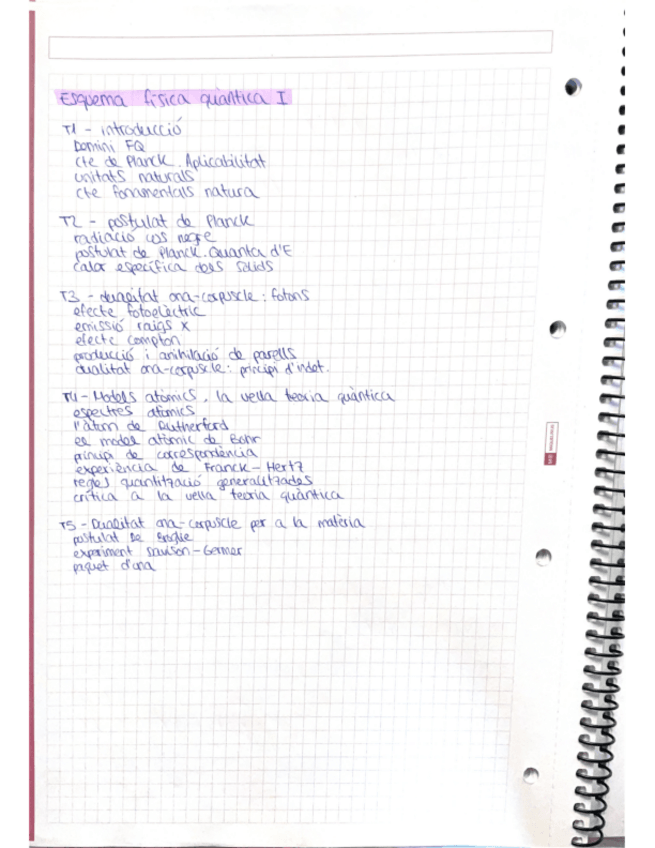 Esquema física quàntica I
T1 - introducció
Domini FQ
cte de Planck. Aplicabilitat
unitats naturals
cte fonamentals natura
T2 - postulat de Planck
radiació cos negre
postulat de Planck. Quanta d'E
calor específica dels sòlids
T3 - dualitat ona-corpuscle: fotons
efecte fotoelèctric
emissió raigs X
efecte compton
producció i anihilació de parells
dualitat ona-corpuscle: principi d'indet.
T4 - Models atòmics. la vella teoria quàntica
espectres atòmics
l'àtom de Rutherford
el model atòmic de Bohr
principi de correspondència
experiència de Franck-Hertz
regles quantització generalitzades
crítica a la vella teoria quàntica
T5 - Dualitat ona-corpuscle per a la matèria
postulat de Broglie
experiment Davison-Germer
paquet d'ona